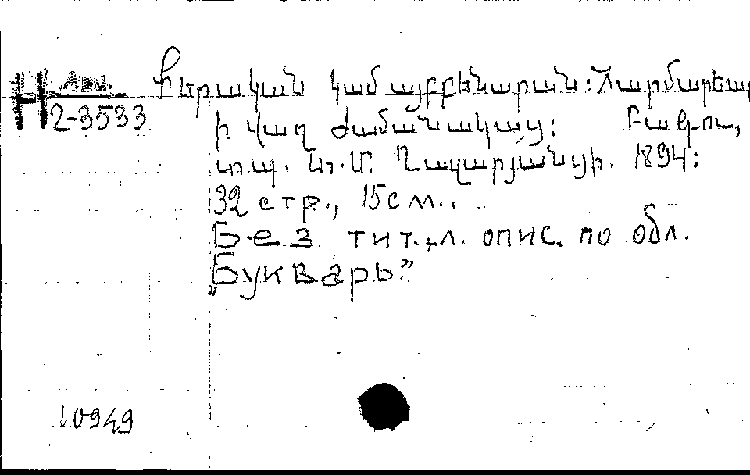 Н Арм.
2-3533
Քերական կամ այբբենարան: Յարմարեալ
ի վաղ ժամանակաց: Բագու,
տպ. Ն.Մ. Ղազարյանցի. 1894:
32 стр., 15 см..
Без тит. л. опис. по обл.
„Букварь”
10949